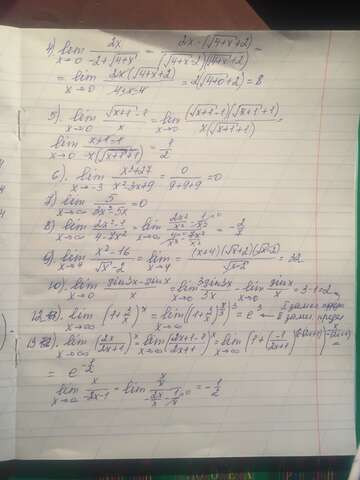 4) lim x→0 2x / (-2+√(4+x)) = 2x·(√(4+x)+2) / ((√(4+x)-2)(√(4+x)+2)) =
= lim x→0 2x(√(4+x)+2) / (4+x-4) = 2(√(4+0)+2) = 8
5). lim x→0 (√(x+1)-1) / x = lim x→0 (√(x+1)-1)(√(x+1)+1) / (x(√(x+1)+1)) =
lim x→0 (x+1-1) / (x(√(x+1)+1)) = 1/2
6). lim x→-3 (x³+27) / (x²-3x+9) = 0 / (9+9+9) = 0
7) lim x→∞ 5 / (3x²-5x) = 0
8) lim x→∞ (2x²-1) / (4-3x²) = lim x→∞ (2x²/x² - 1/x²) / (4/x² - 3x²/x²) = -2/3
9) lim x→4 (x²-16) / (√x-2) = lim x→4 = (x+4)(√x+2)(√x-2) / (√x-2) = 32
10). lim x→0 (sin3x-sinx) / x = lim x→0 3sin3x / 3x - lim x→0 sinx / x = 3-1=2
12. lim x→∞ (1+3/x)^x = lim x→∞ ((1+3/x)^(x/3))^3 = e³
13 lim x→∞ (2x / (2x+1))^x = lim x→∞ ((2x+1-1) / (2x+1))^x = lim x→∞ (1+(-1 / (2x+1)))
= e^(-1/2)
lim x→∞ x / (-2x-1) = lim (x/x) / (-2x/x - 1/x) = -1/2